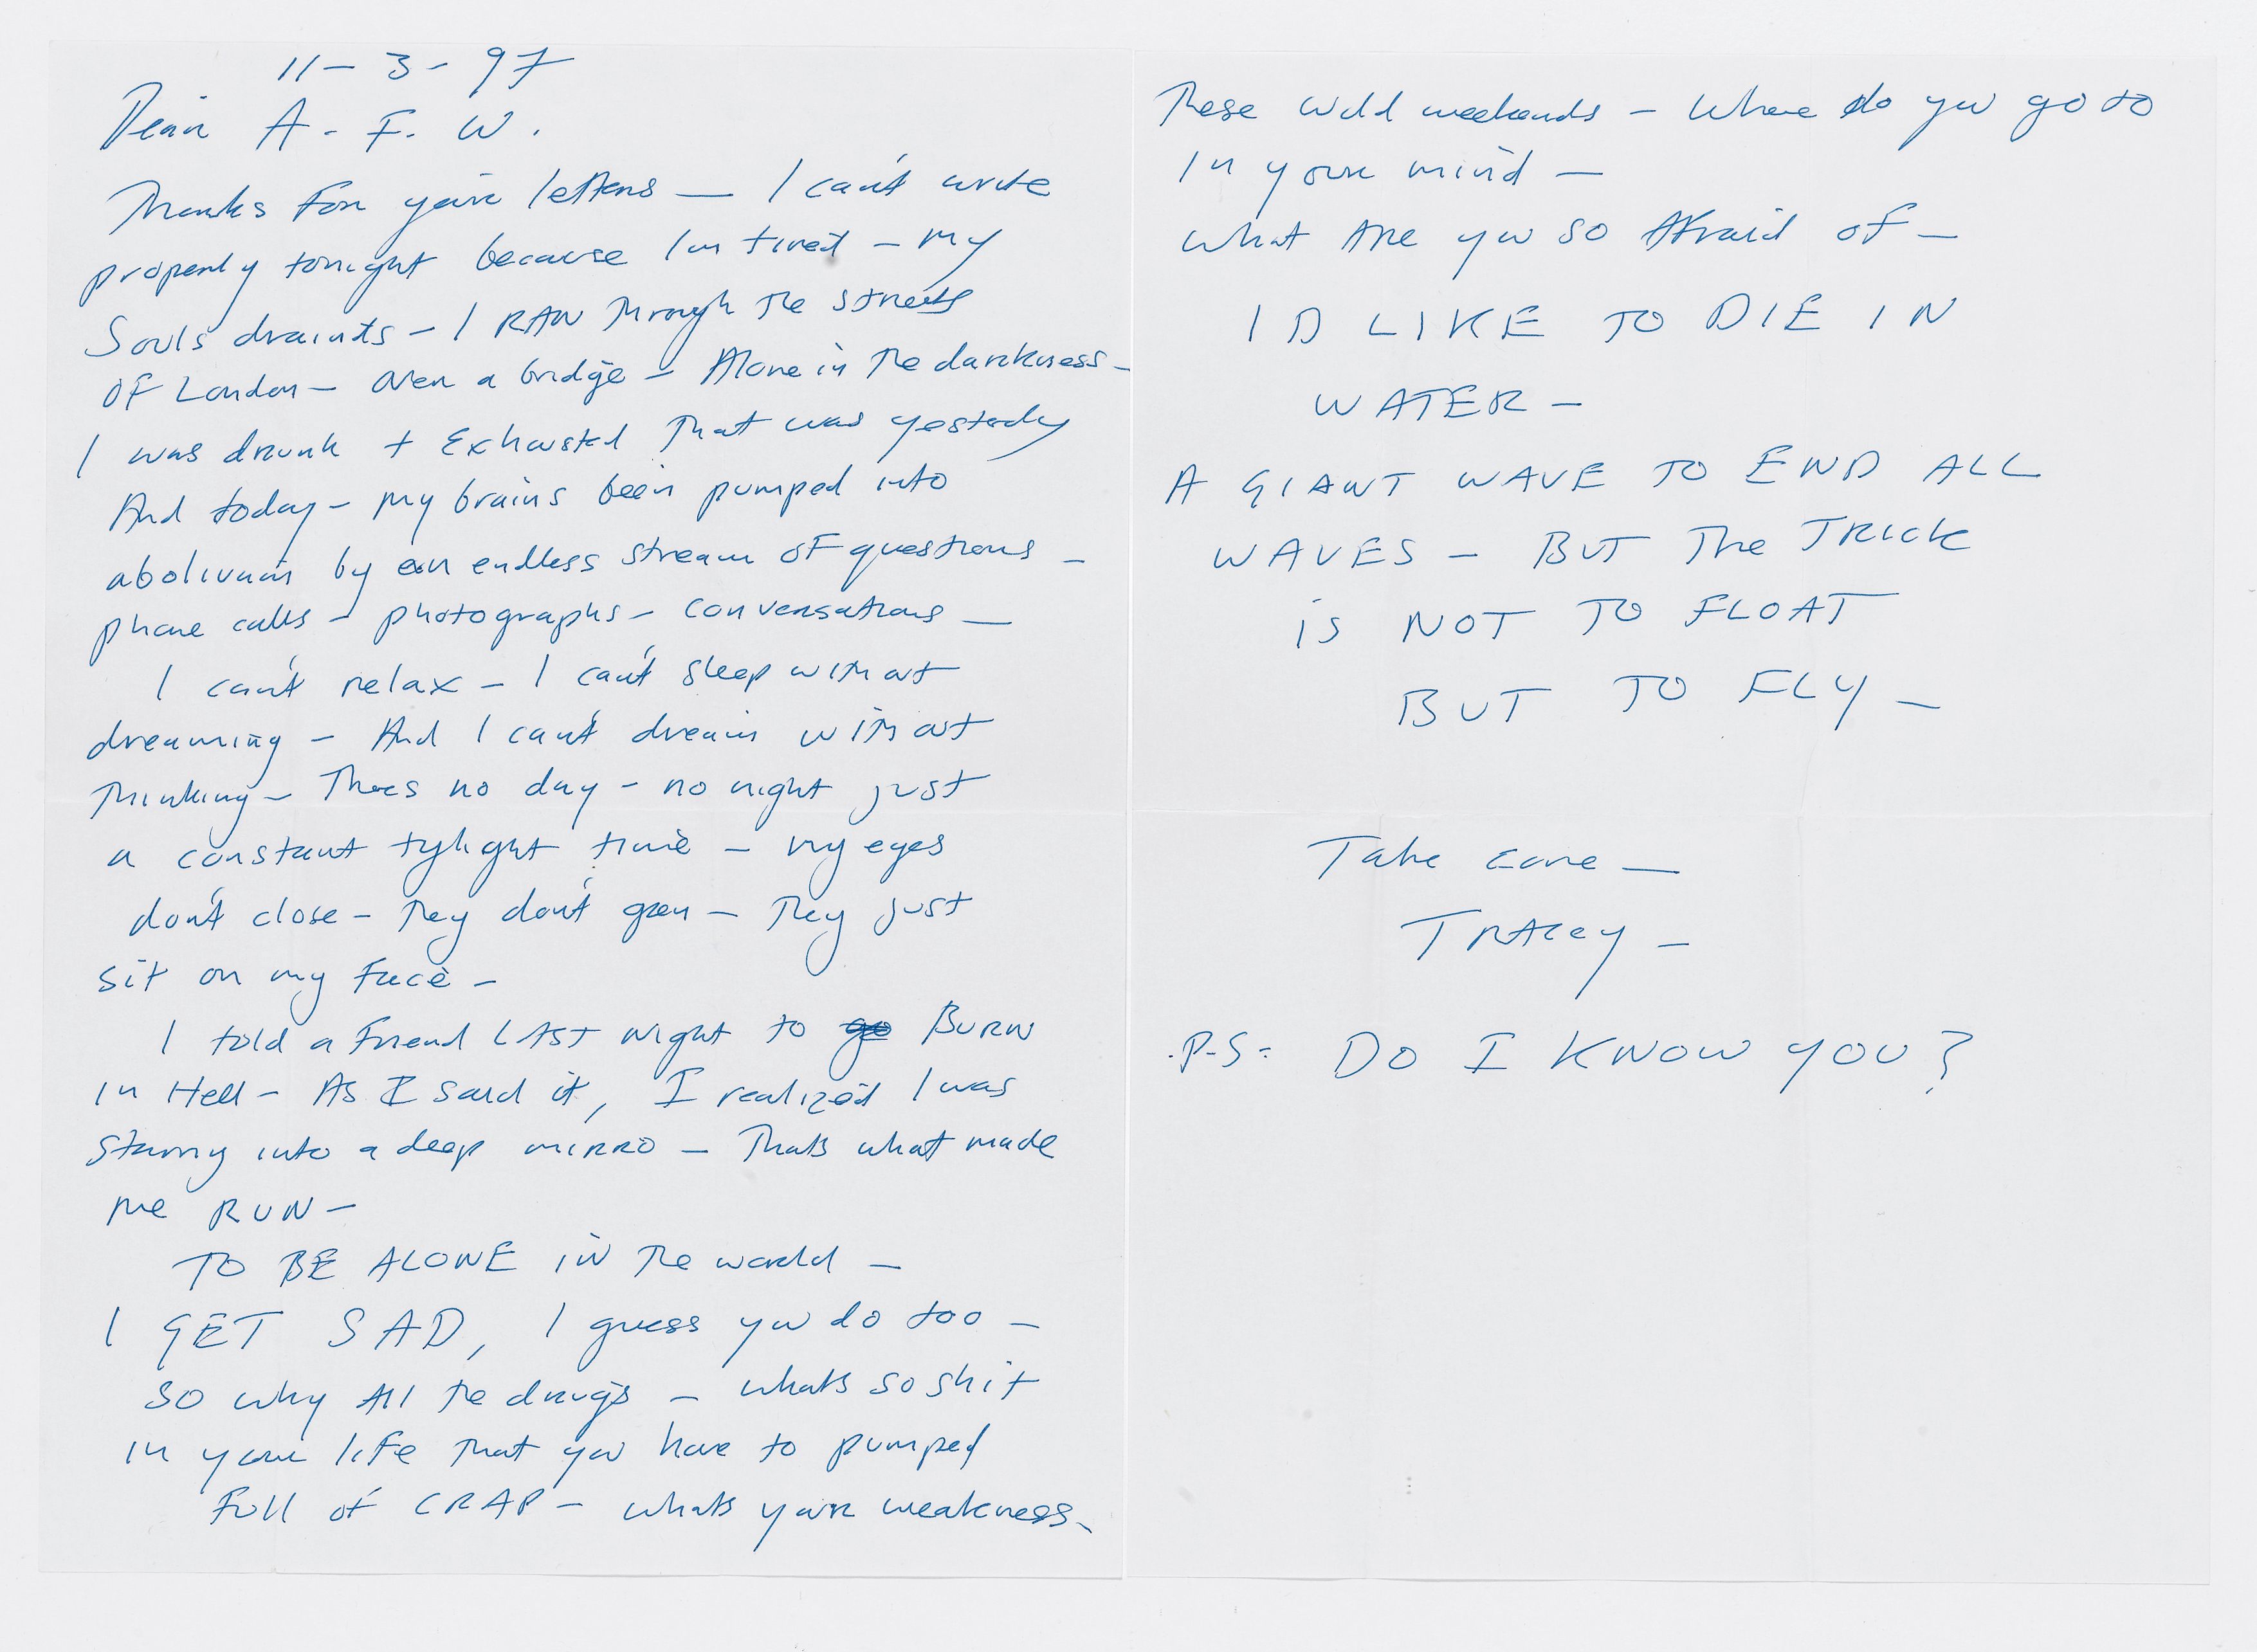 11 - 3 - 97
Dear A. F. W.
Thanks For your letters — I can't write
properly tonight because Im tired — my
Souls draints — I RAN Through The streets
OF London — over a bridge — Alone in The darckness —
I was drunk + Exhausted That was yesterday
And today — my brains been pumped into
abolivum by an endless stream OF questions —
phone calls — photographs — conversations —
I can't relax — I can't sleep without
dreaming — And I can't dream without
Thinking — Theres no day — no night just
a constant tylight time — my eyes
don't close — They don't open — They just
sit on my Face —
I told a Friend LAST night to go BURN
in Hell — As I said it, I realized I was
staring into a deep mirro — Thats what made
me RUN —
TO BE ALONE iN The world —
I GET SAD, I guess you do too —
so why All The drugs — whats so shit
in your life That you have to pumped
Full of CRAP — whats your weakness —
These wild weekends — Where do you go to
In your mind —
what Are you so Afraid of —
I D LIKE TO DIE IN
WATER —
A GIANT WAVE TO END ALL
WAVES — BUT The TRICK
is NOT TO FLOAT
BUT TO FLY —
Take care —
TRAcey —
.P.S. DO I KNOW YOU?